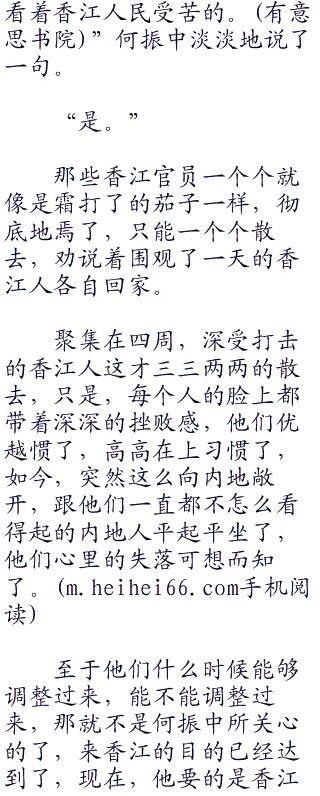 看着香江人民受苦的。(有意
思书院)”何振中淡淡地说了
一句。
“是。”
那些香江官员一个个就
像是霜打了的茄子一样，彻
底地焉了，只能一个个散
去，劝说着围观了一天的香
江人各自回家。
聚集在四周，深受打击
的香江人这才三三两两的散
去，只是，每个人的脸上都
带着深深的挫败感，他们优
越惯了，高高在上习惯了，
如今，突然这么向内地敞
开，跟他们一直都不怎么看
得起的内地人平起平坐了，
他们心里的失落可想而知
了。(m.heihei66.com手机阅
读)
至于他们什么时候能够
调整过来，能不能调整过
来，那就不是何振中所关心
的了，来香江的目的已经达
到了，现在，他要的是香江